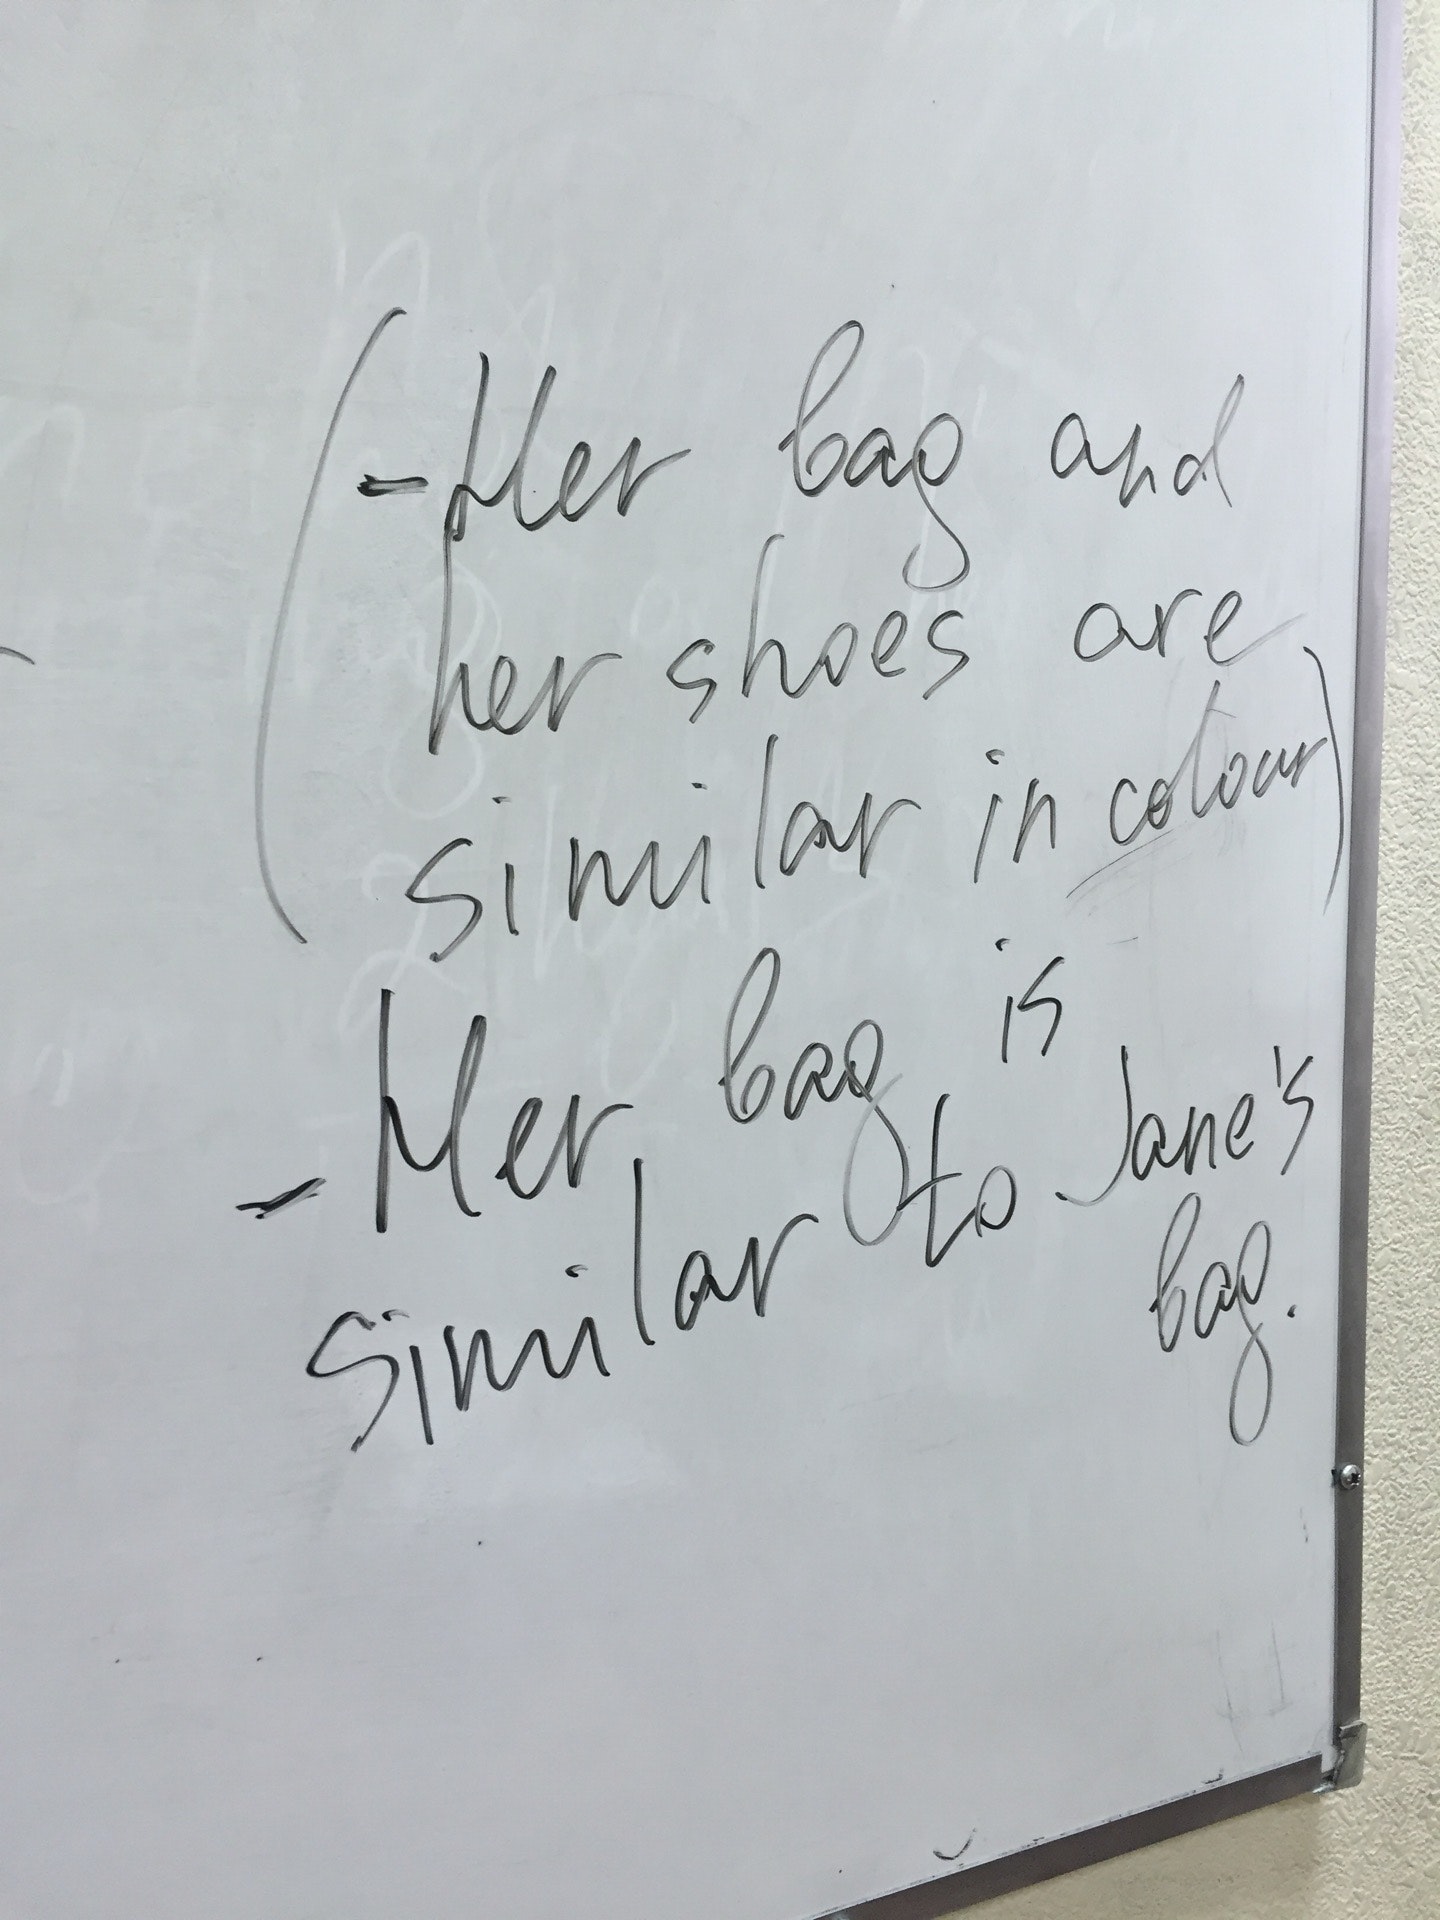 (- Her bag and
her shoes are
similar in colour)
- Her bag is
similar to Jane's
bag.